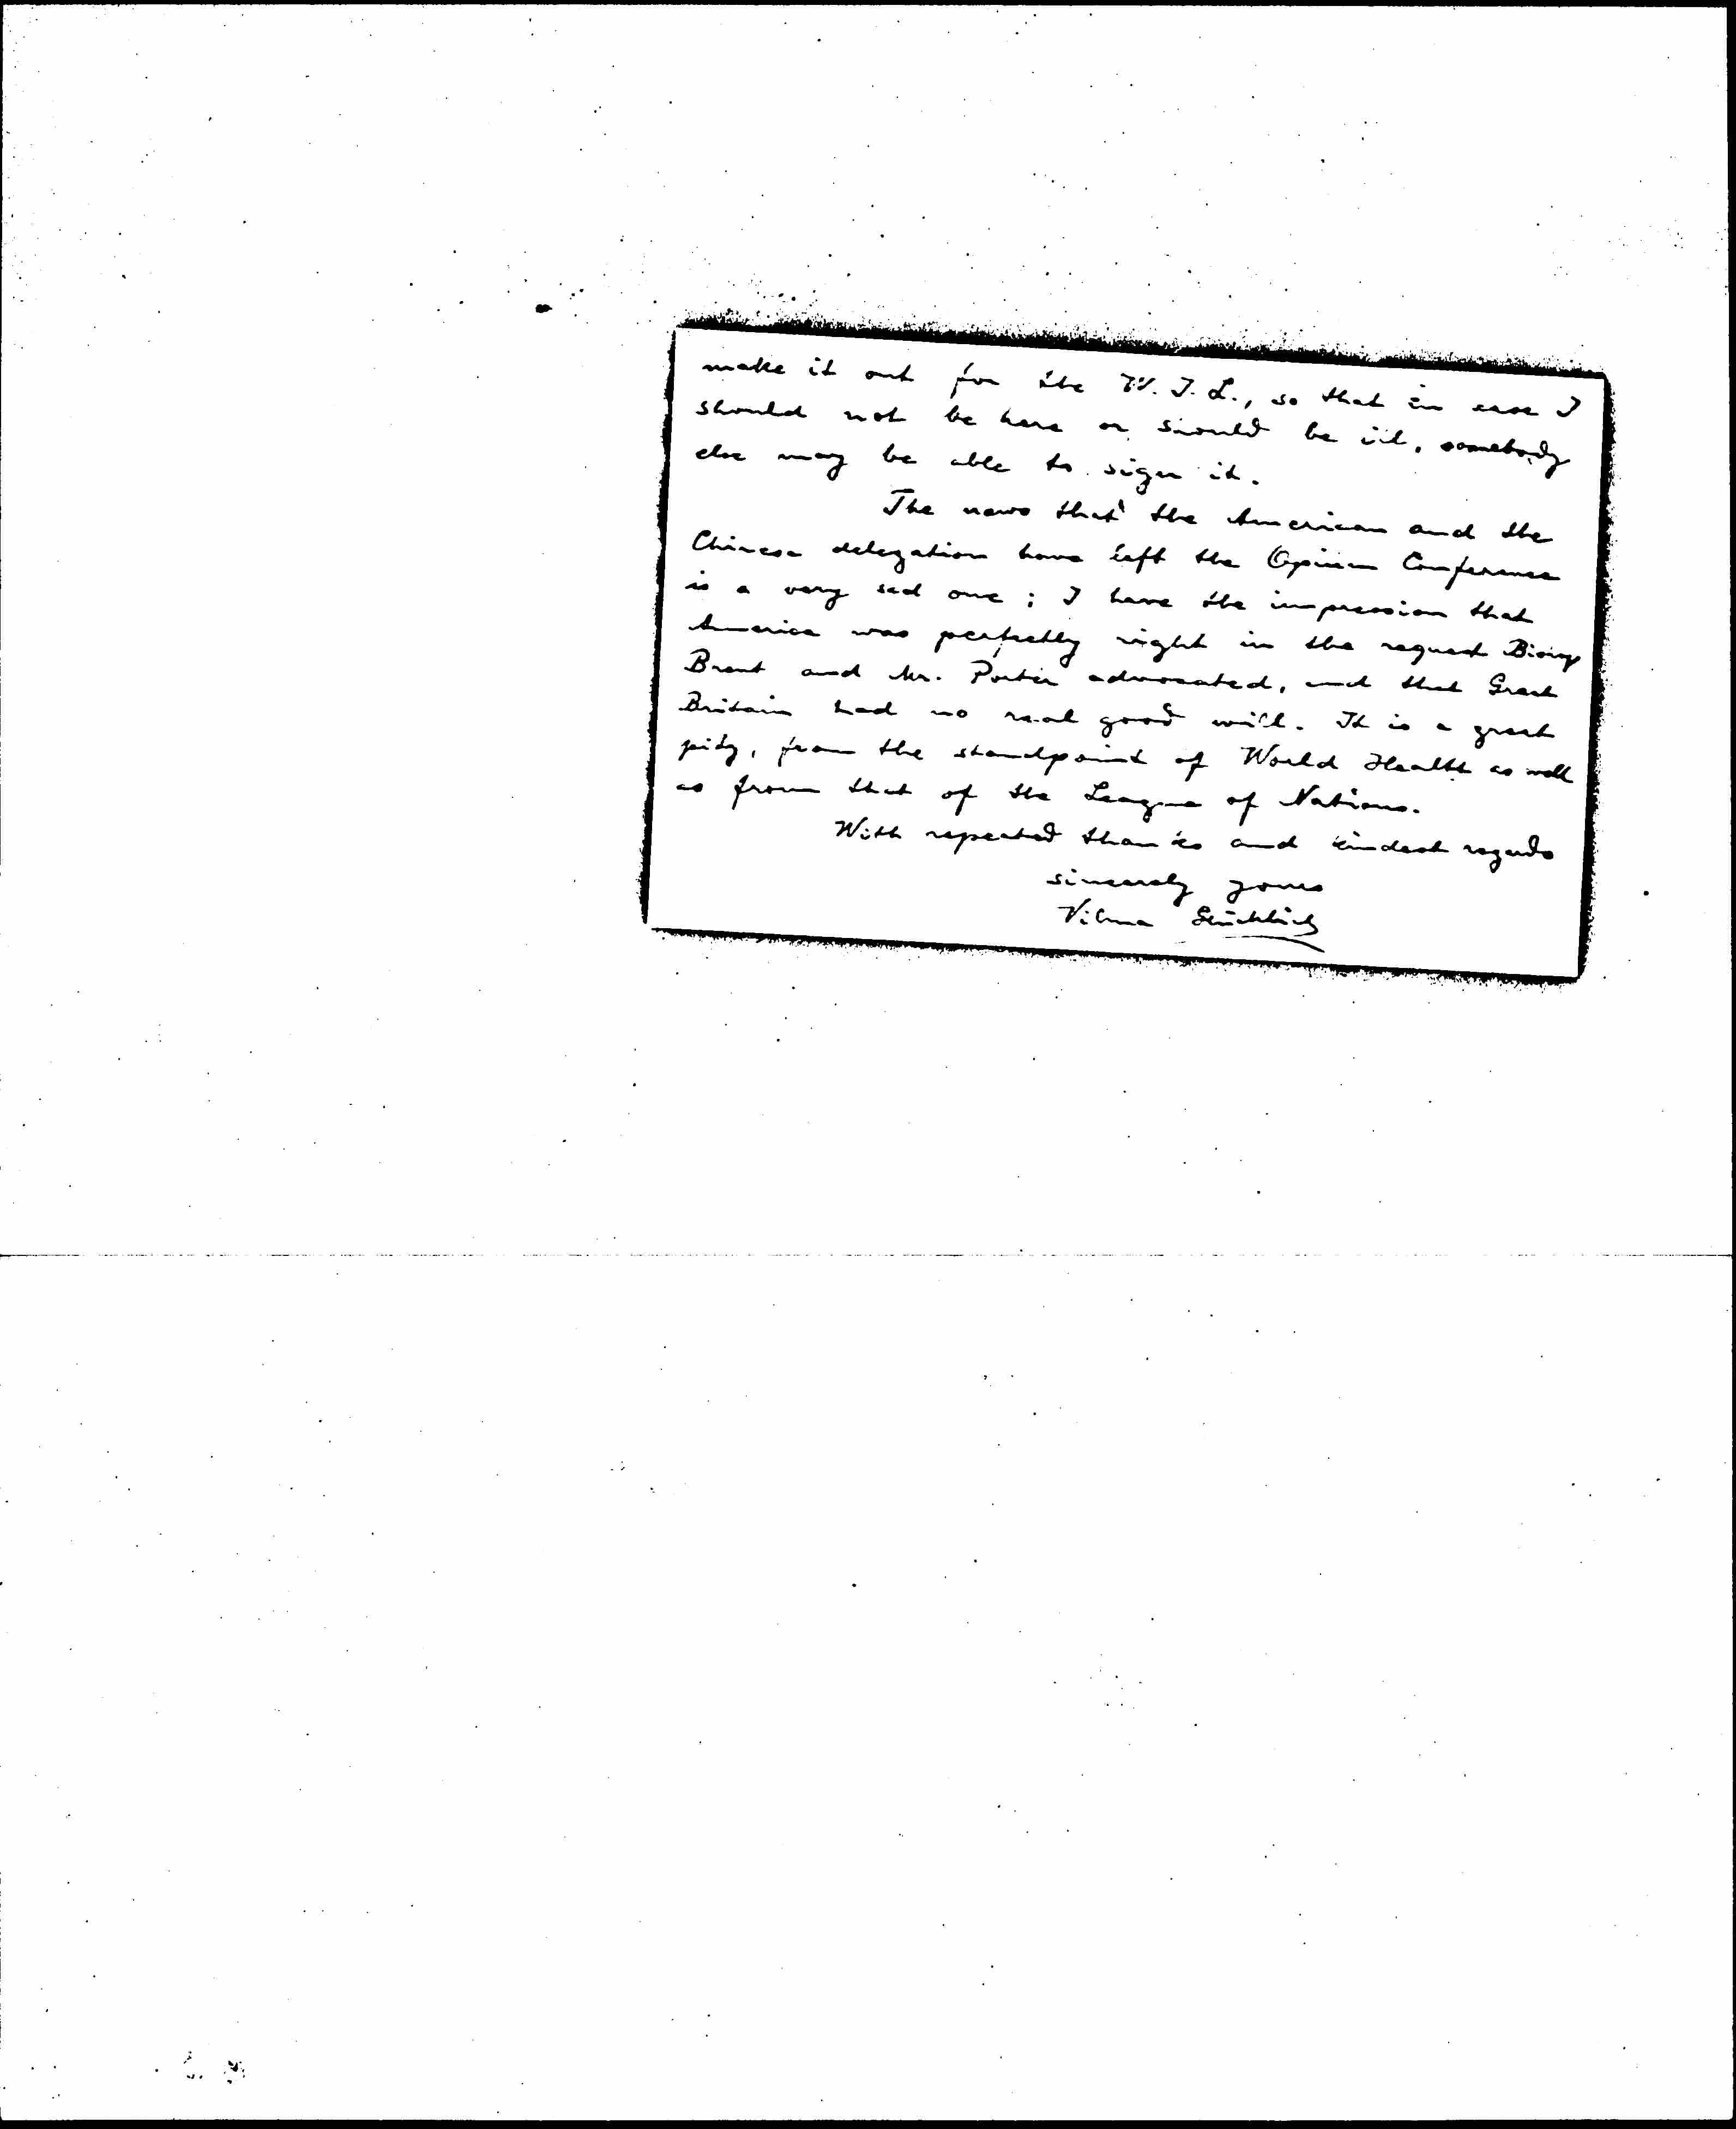 make it out for the W. I. L., so that in case I
should not be here or should be ill, somebody
else may be able to sign it.
The news that the American and the
Chinese delegation have left the Opium Conference
is a very sad one; I have the impression that
America was perfectly right in the request Bishop
Brent and Mr. Porter advocated, and that Great
Britain had no real good will. It is a great
pity, from the standpoint of World Health as well
as from that of the League of Nations.
With repeated thanks and kindest regards
sincerely yours
Vilma Glücklich